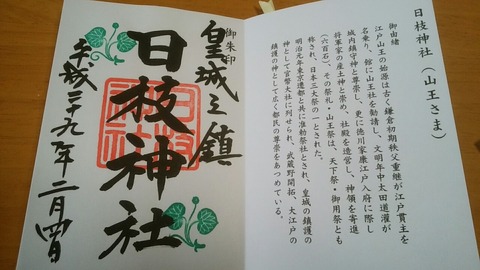 日枝神社(山王さま)
御由緒
江戸山王の始源は古く鎌倉初期秩父重継が江戸貫主を
名乗り、館に山王社を勧請し、文明年中太田道灌が
城内鎮守神と尊崇し、更に徳川家康江戸入府に際し
将軍家の産土神と崇め、社殿を造営し、神領を寄進
(六百石)。その祭礼・山王祭は、天下祭・御用祭とも
称され、日本三大祭の一とされた。
明治元年東京遷都と共に准勅祭社とされ、皇城の鎮護の
神として官幣大社に列せられ、武蔵野開拓、大江戸の
鎮護の神として広く都民の尊崇をあつめている。
御朱印
皇城之鎮
日枝神社
日枝神社
平成二十九年二月四日